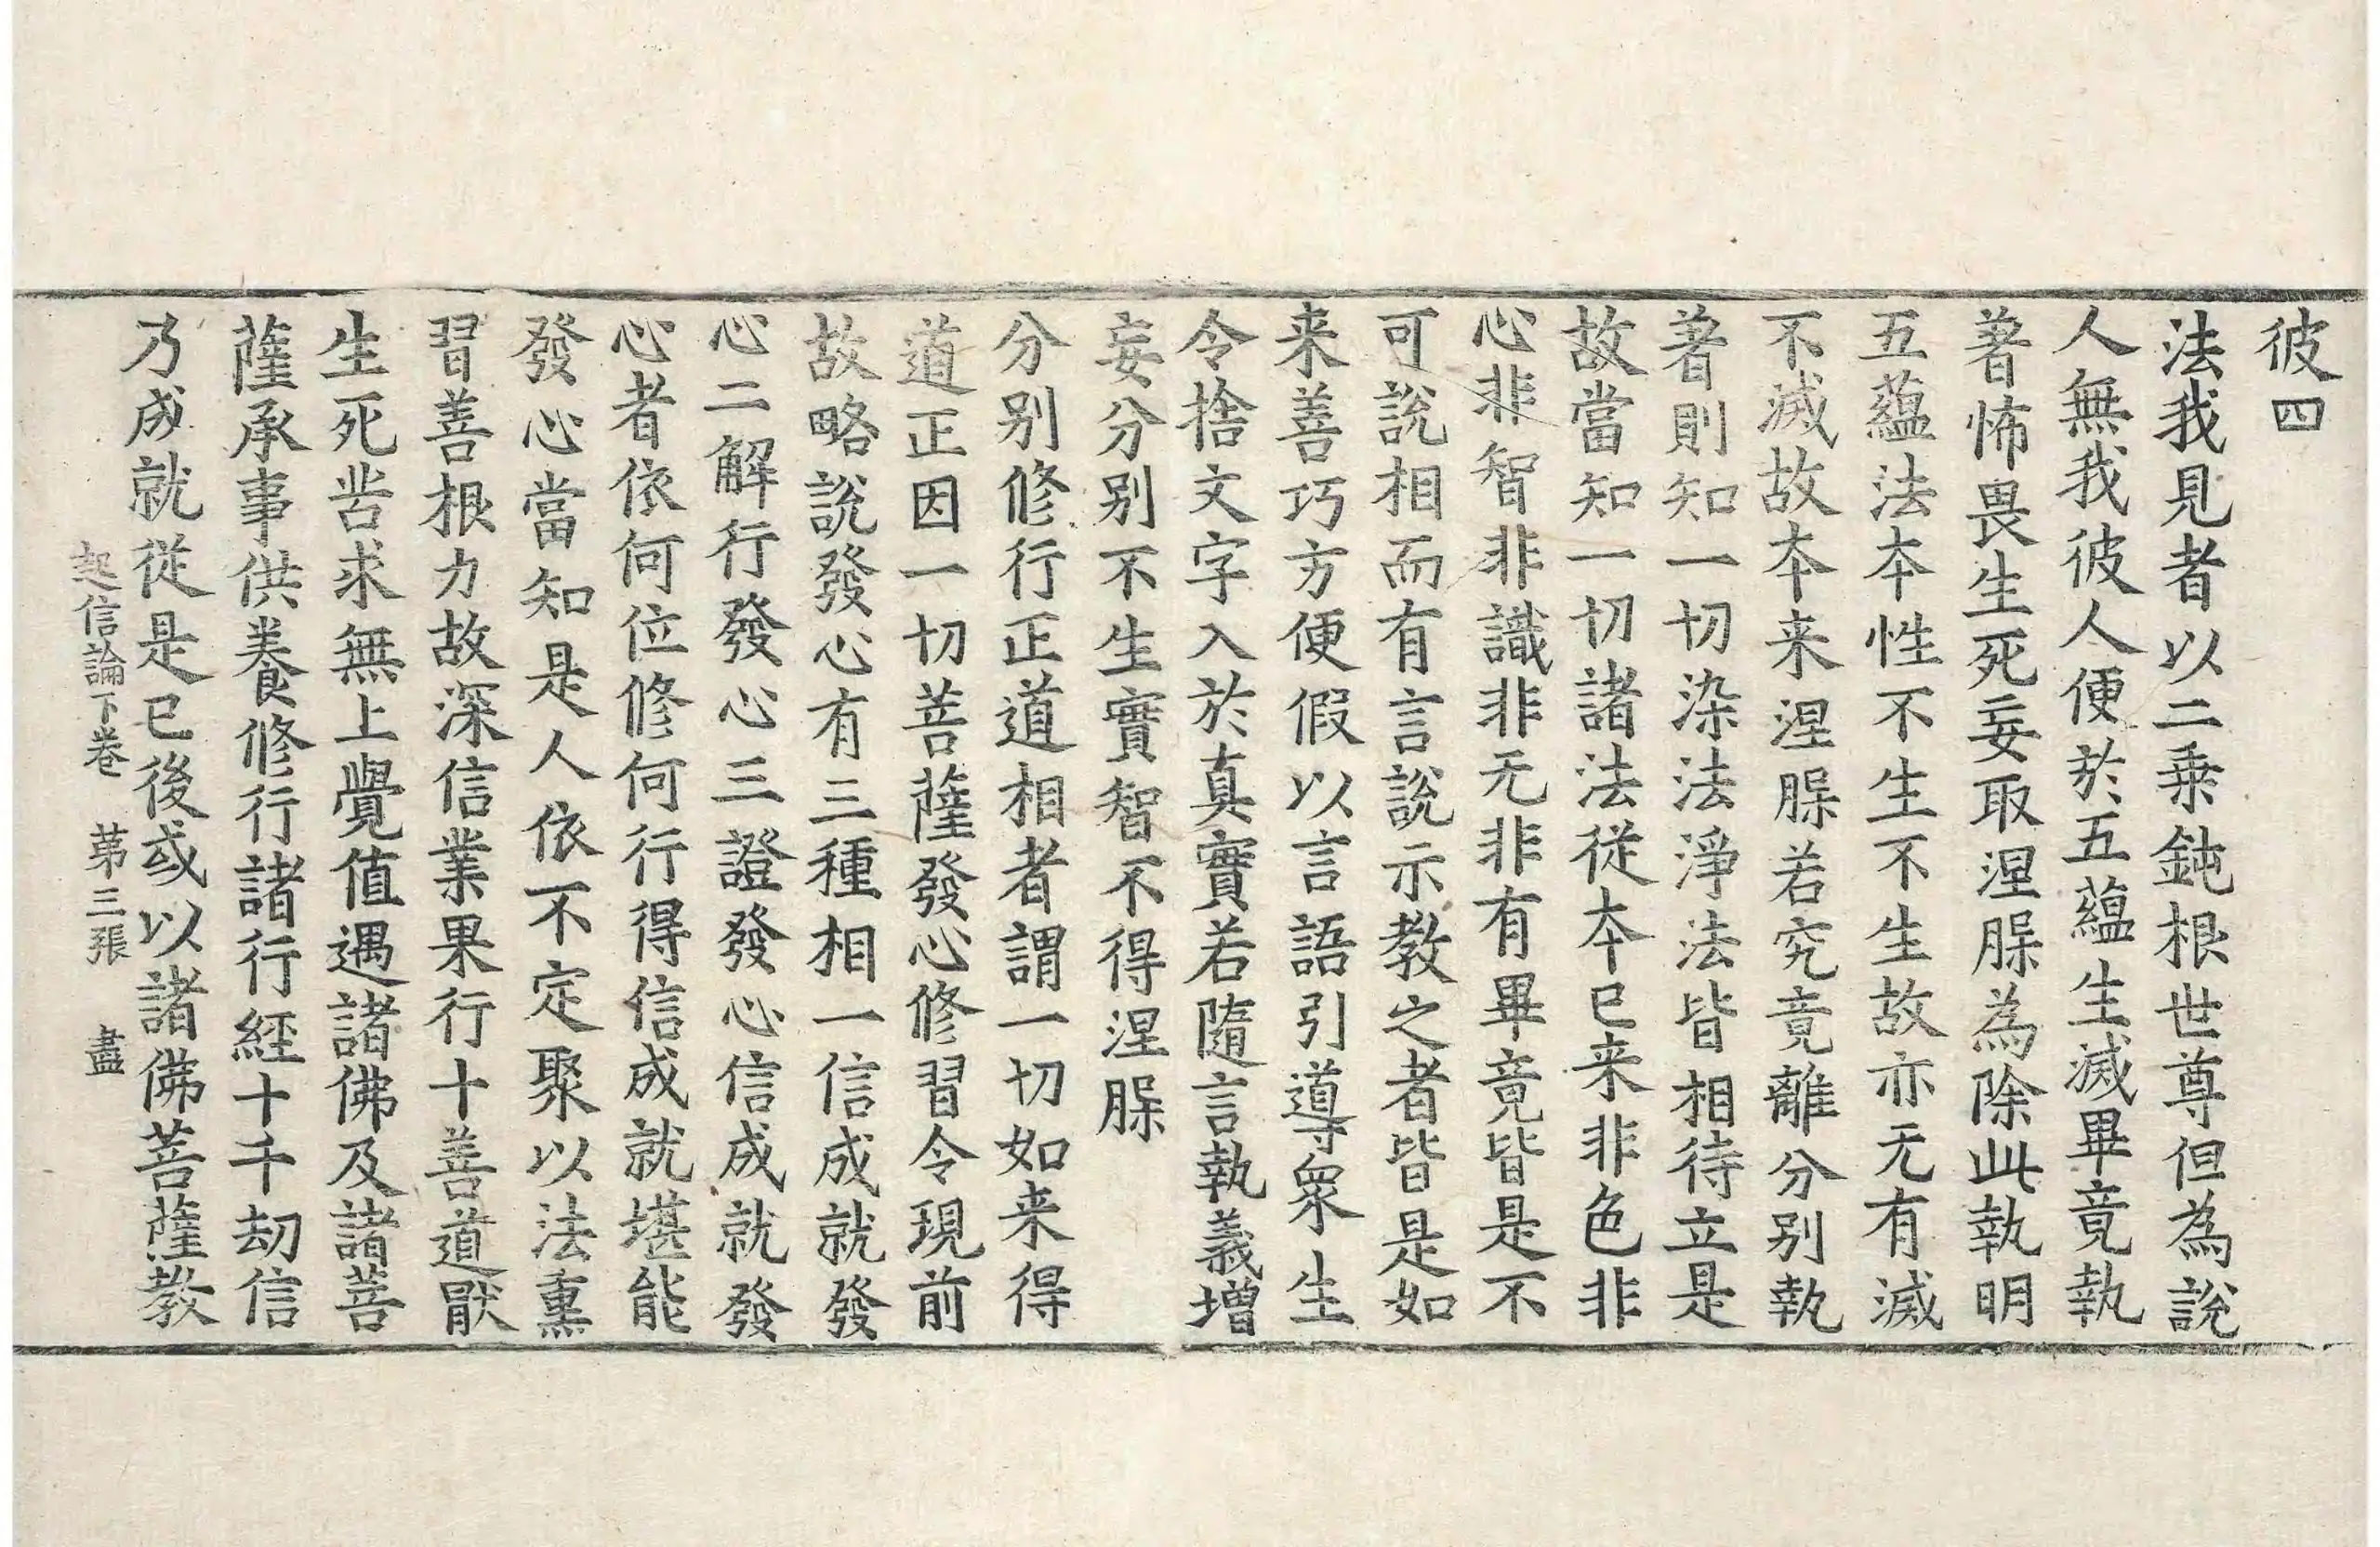 彼四
法我見者以二乗鈍根世尊但為說
人無我彼人便於五蘊生滅畢竟執
著怖畏生死妄取涅䏶為除此執明
五蘊法本性不生不生故亦无有滅
不滅故本来涅䏶若究竟離分别執
著則知一切染法淨法皆相待立是
故當知一切諸法從本已来非色非
心非智非識非无非有畢竟皆是不
可說相而有言說示教之者皆是如
来善巧方便假以言語引導衆生
令捨文字入於真實若隨言執義增
妄分别不生實智不得涅䏶
分别修行正道相者謂一切如来得
道正因一切菩薩發心修習令現前
故略說發心有三種相一信成就發
心二解行發心三證發心信成就發
心者依何位修何行得信成就堪能
發心當知是人依不定聚以法熏
習善根力故深信業果行十善道厭
生死苦求無上覺值遇諸佛及諸菩
薩承事供養修行諸行經十千劫信
乃成就從是已後或以諸佛菩薩教
起信論下卷　苐三張　盡